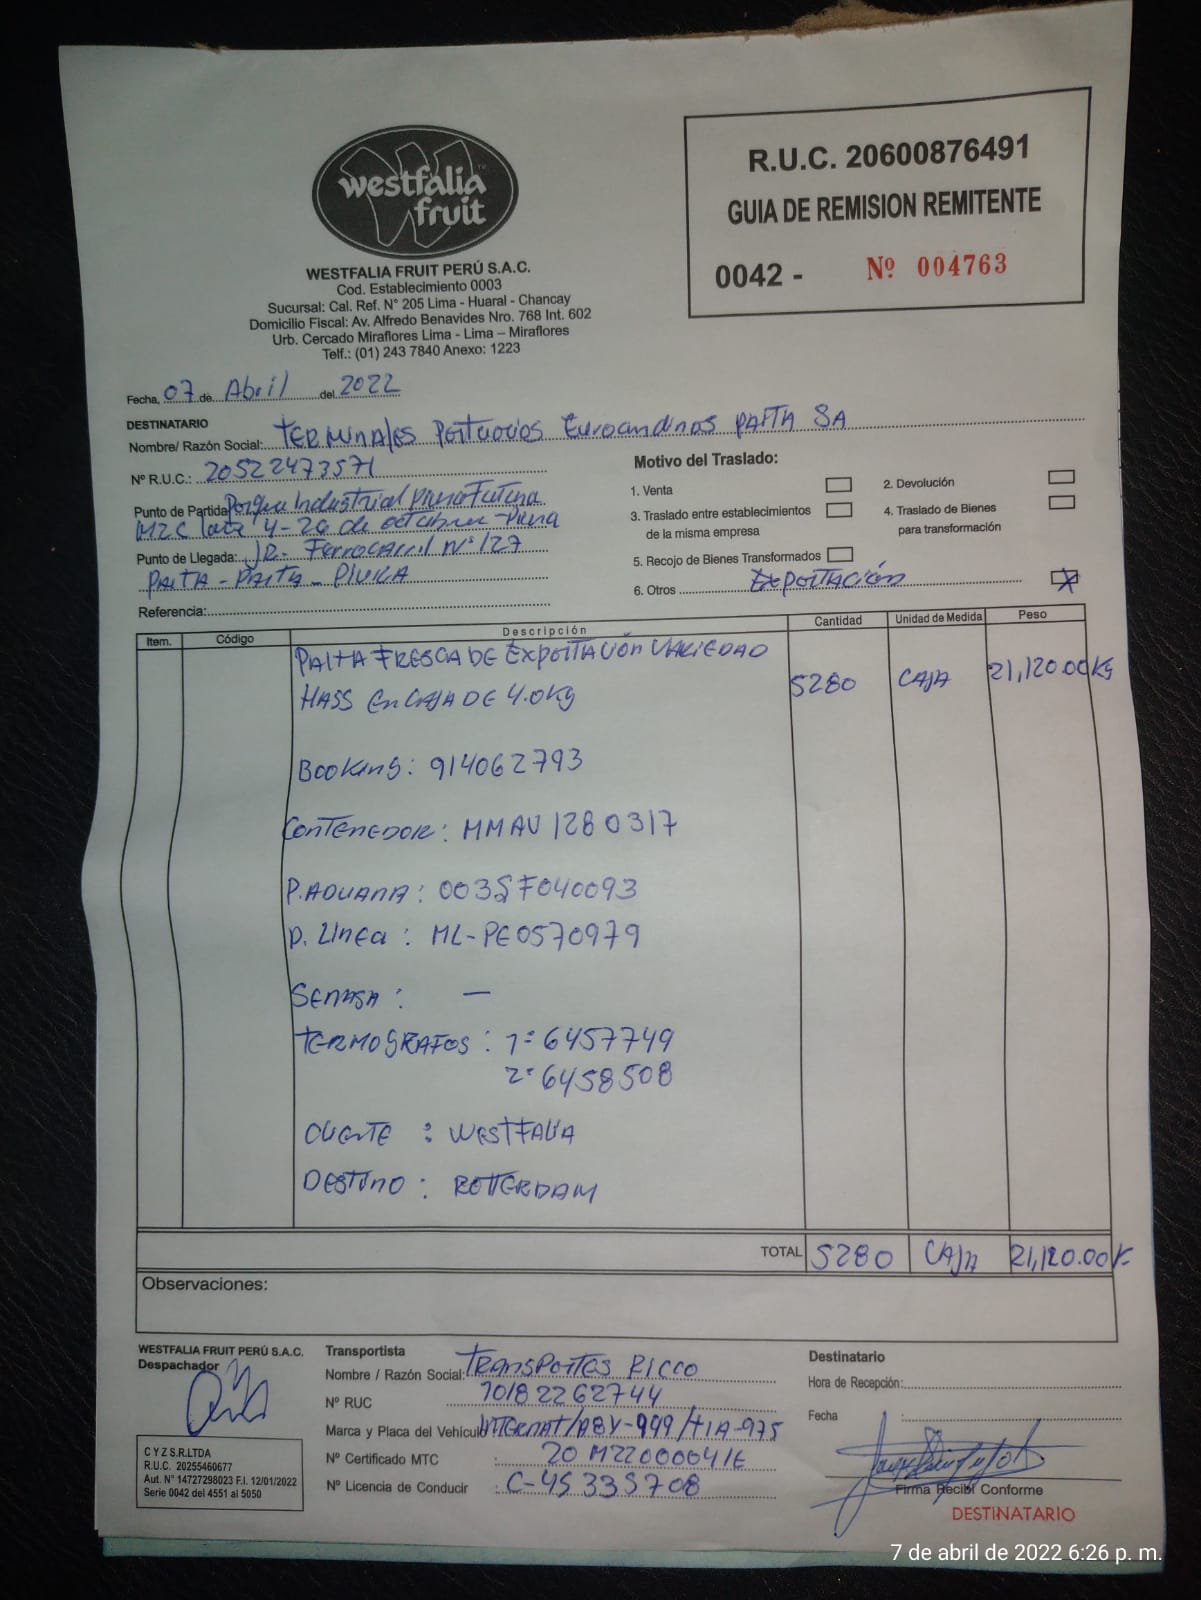 westfalia
fruit
WESTFALIA FRUIT PERÚ S.A.C.
Cod. Establecimiento 0003
Sucursal: Cal. Ref. N° 205 Lima - Huaral - Chancay
Domicilio Fiscal: Av. Alfredo Benavides Nro. 768 Int. 602
Urb. Cercado Miraflores Lima - Lima – Miraflores
Telf.: (01) 243 7840 Anexo: 1223
R.U.C. 20600876491
GUIA DE REMISION REMITENTE
0042 - Nº 004763
Fecha, 07 de Abril del 2022
DESTINATARIO
Nombre/ Razón Social: TERMINALES PORTUARIOS Euroandinos PAITA SA
Nº R.U.C.: 20522473571
Punto de Partida Industrial Piura Futura
MZC Lote 4-26 de octubre - Piura
Punto de Llegada: JR. Ferrocarril N° 127
PAITA - PAITA - PIURA
Referencia:
Motivo del Traslado:
1. Venta
2. Devolución
3. Traslado entre establecimientos
de la misma empresa
4. Traslado de Bienes
para transformación
5. Recojo de Bienes Transformados
6. Otros EXPORTACIÓN X
Item. Código Descripción Cantidad Unidad de Medida Peso
PALTA FRESCA DE EXPORTACIÓN VARIEDAD
HASS En CAJA DE 4.0KG 5280 CAJA 21,120.00KG
BOOKING: 914062793
CONTENEDOR: MMAU 1280317
P.ADUANA: 003SF040093
P. Línea: ML-PE0570979
SENASA: —
TERMOGRAFOS: 1: 6457749
2: 6458508
CLIENTE : WESTFALIA
DESTINO : ROTTERDAM
TOTAL 5280 CAJA 21,120.00K
Observaciones:
WESTFALIA FRUIT PERÚ S.A.C.
Despachador
C Y Z S.R.LTDA
R.U.C. 20255460677
Aut. N° 14727298023 F.I. 12/01/2022
Serie 0042 del 4551 al 5050
Transportista
Nombre / Razón Social: TRANSPORTES RICCO
Nº RUC 10182262744
Marca y Placa del Vehículo INTERNAT/A8Y-999/T1A-975
Nº Certificado MTC : 20 M22000041E
Nº Licencia de Conducir : C-45335708
Destinatario
Hora de Recepción:
Fecha :
Firma Recibí Conforme
DESTINATARIO
7 de abril de 2022 6:26 p. m.